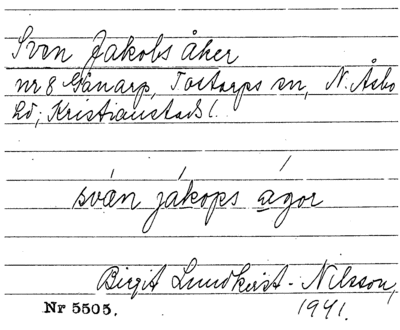 Sven Jakobs åker
nr 8 Gånarp, Tostarps sn, N. Åsbo
hd; Kristianstads l.
sván jákops ágor
Birgit Lundkvist-Nilsson,
Nr 5505. 1941.